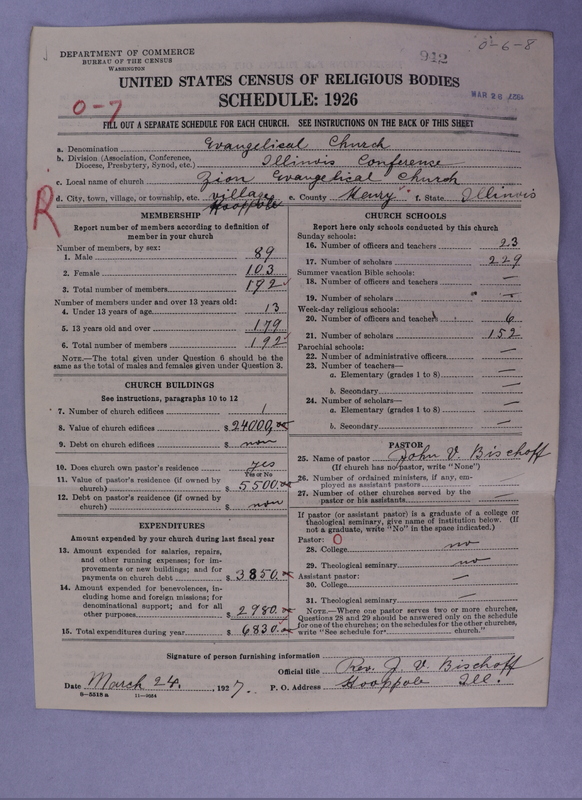 DEPARTMENT OF COMMERCE
BUREAU OF THE CENSUS
WASHINGTON
912
0-6-8
UNITED STATES CENSUS OF RELIGIOUS BODIES
MAR 26
SCHEDULE: 1926
0-7
FILL OUT A SEPARATE SCHEDULE FOR EACH CHURCH. SEE INSTRUCTIONS ON THE BACK OF THIS SHEET
a. Denomination Evangelical Church
b. Division (Association, Conference, Diocese, Presbytery, Synod, etc.) Illinois Conference
c. Local name of church Zion Evangelical Church
d. City, town, village, or township, etc. village Hooppole e. County Henry f. State Illinois
R
MEMBERSHIP
Report number of members according to definition of
member in your church
Number of members, by sex:
1. Male 89
2. Female 103
3. Total number of members 192
Number of members under and over 13 years old:
4. Under 13 years of age 13
5. 13 years old and over 179
6. Total number of members 192
NOTE.—The total given under Question 6 should be
same as the total of males and females given under Question 3.
CHURCH BUILDINGS
See instructions, paragraphs 10 to 12
7. Number of church edifices 1
8. Value of church edifices $24000,00
9. Debt on church edifices $ non
10. Does church own pastor's residence yes
Yes or No
11. Value of pastor's residence (if owned by
church) $5500.00
12. Debt on pastor's residence (if owned by
church) $ non
EXPENDITURES
Amount expended by your church during last fiscal year
13. Amount expended for salaries, repairs,
and other running expenses; for im-
provements or new buildings; and for
payments on church debt $3850.00
14. Amount expended for benevolences, in-
cluding home and foreign missions; for
denominational support; and for all
other purposes $2980.00
15. Total expenditures during year $6830.00
CHURCH SCHOOLS
Report here only schools conducted by this church
Sunday schools:
16. Number of officers and teachers 23
17. Number of scholars 229
Summer vacation Bible schools:
18. Number of officers and teachers —
19. Number of scholars —
Week-day religious schools:
20. Number of officers and teachers 6
21. Number of scholars 152
Parochial schools:
22. Number of administrative officers —
23. Number of teachers—
a. Elementary (grades 1 to 8) —
b. Secondary —
24. Number of scholars—
a. Elementary (grades 1 to 8) —
b. Secondary —
PASTOR
25. Name of pastor John V. Bischoff
(If church has no pastor, write "None")
26. Number of ordained ministers, if any, em-
ployed as assistant pastors —
27. Number of other churches served by the
pastor or his assistants —
If pastor (or assistant pastor) is a graduate of a college or
theological seminary, give name of institution below. (If
not a graduate, write "No" in the space indicated.)
Pastor: 0
28. College no
29. Theological seminary no
Assistant pastor:
30. College —
31. Theological seminary —
NOTE.—Where one pastor serves two or more churches,
Questions 28 and 29 should be answered only on the schedule
for one of the churches; on the schedules for the other churches,
write "See schedule for church."
Signature of person furnishing information
Official title Rev. J. V. Bischoff
Date March 24, 1927. P. O. Address Hooppole Ill.
8-5518 a